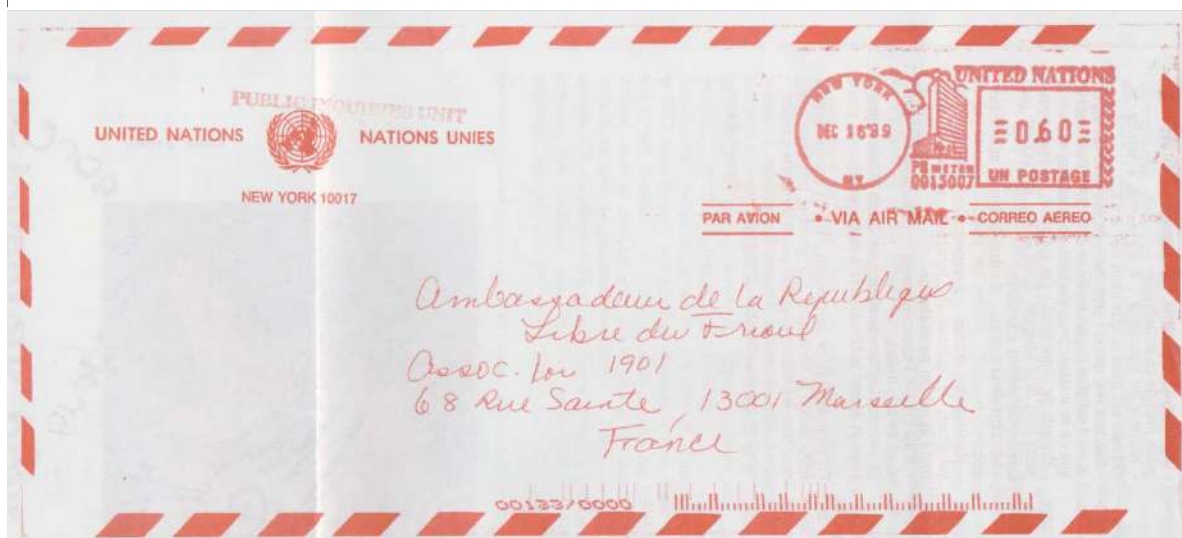 PUBLIC INQUIRIES UNIT
UNITED NATIONS NATIONS UNIES
NEW YORK 10017
UNITED NATIONS
NEW YORK
DEC 16'99
NY
PB METER
0015007
0.60
UN POSTAGE
PAR AVION • VIA AIR MAIL • CORREO AEREO
Ambassadeur de la Republique
Libre du Frioul
Assoc. Loi 1901
68 Rue Sainte, 13001 Marseille
France
00133/0000